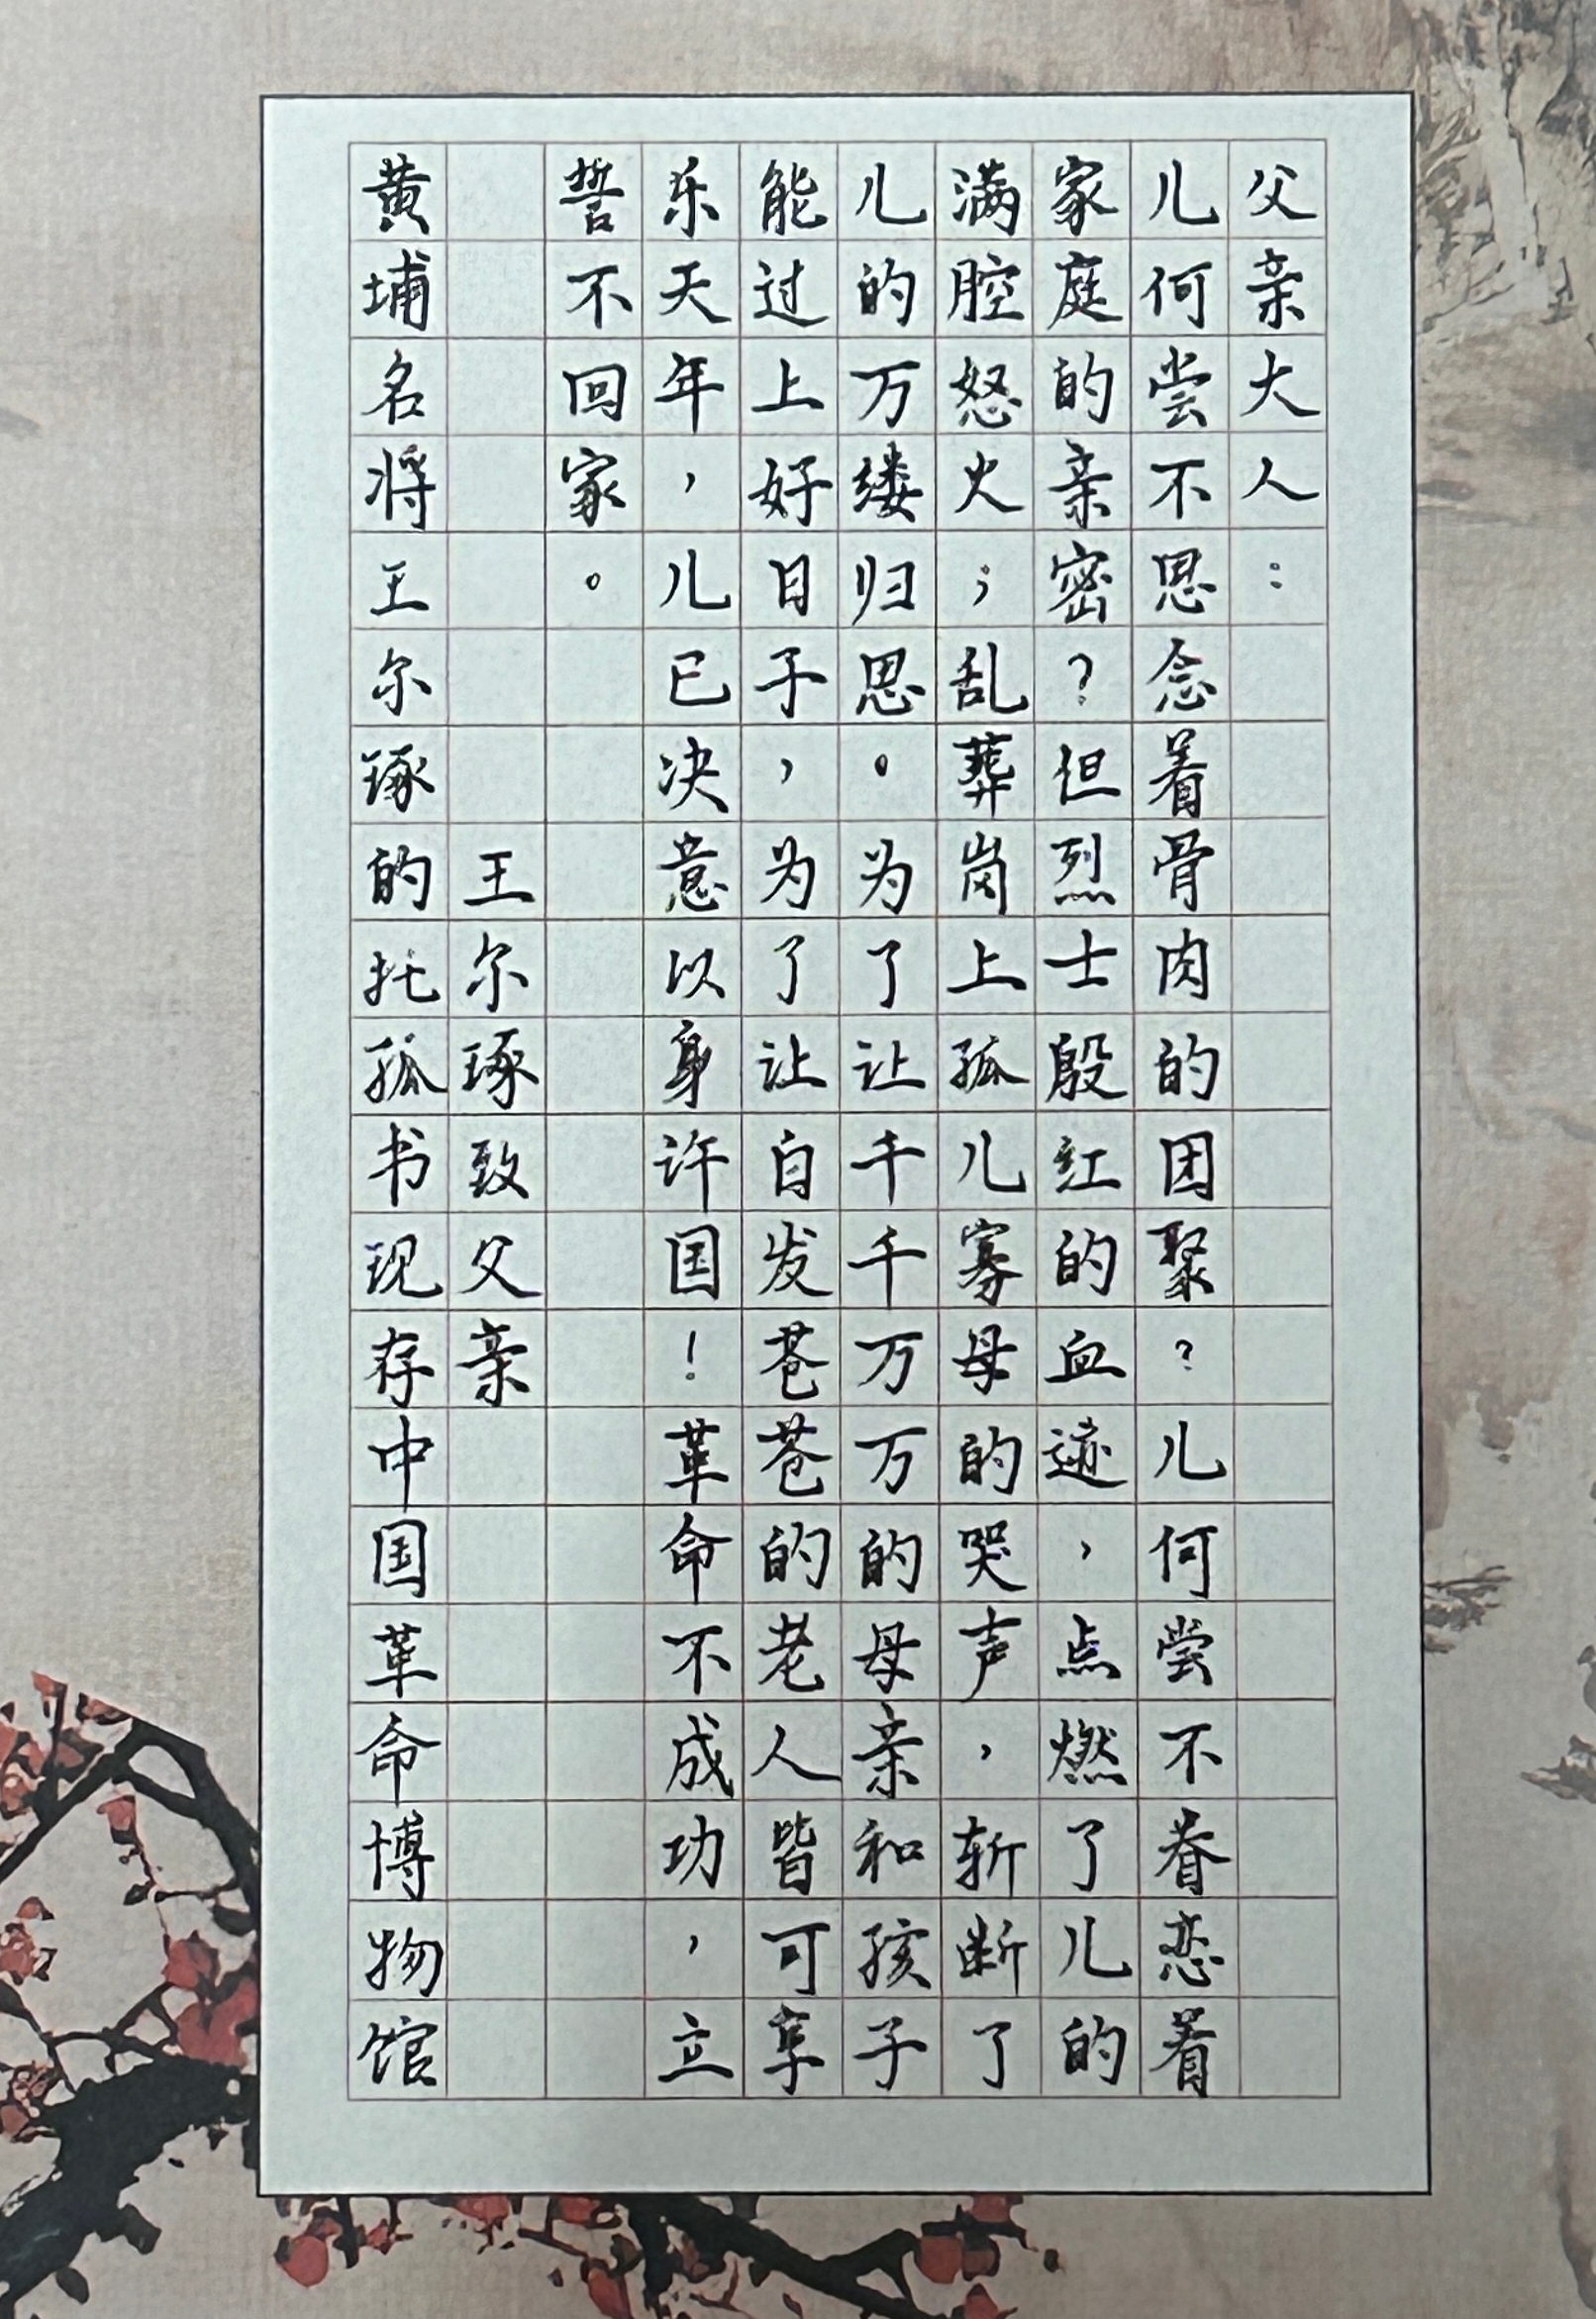 父亲大人：
儿何尝不思念着骨肉的团聚？儿何尝不眷恋着
家庭的亲密？但烈士殷红的血迹，点燃了儿的
满腔怒火；乱葬岗上孤儿寡母的哭声，斩断了
儿的万缕归思。为了让千千万万的母亲和孩子
能过上好日子，为了让白发苍苍的老人皆可享
乐天年，儿已决意以身许国！革命不成功，立
誓不回家。
王尔琢致父亲
黄埔名将王尔琢的托孤书现存中国革命博物馆